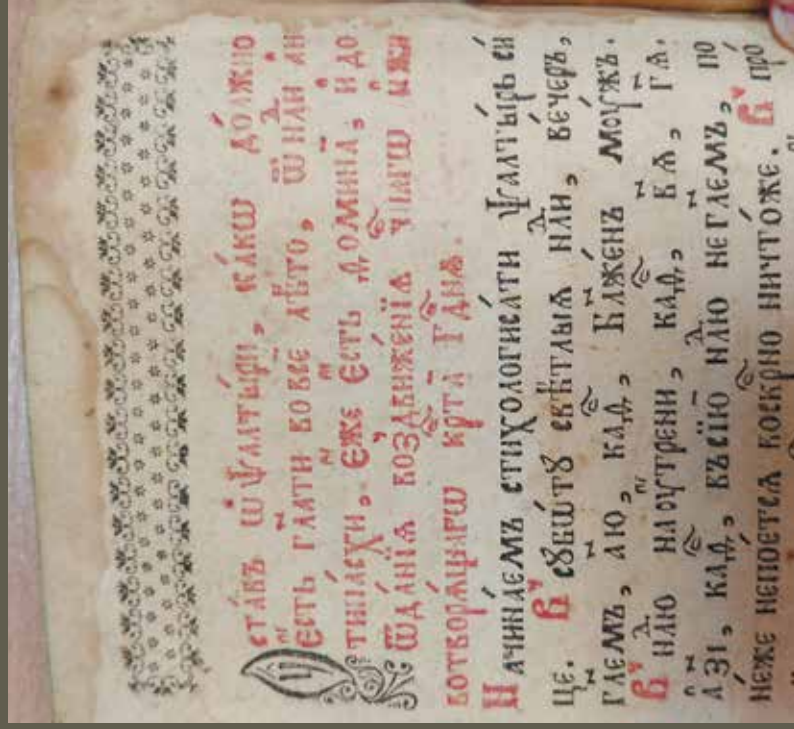 Уста́въ ѡ҆ ѱалты́ри, ка́кѡ до́лжно
є҆сть гл҃ати во все лѣ́то, ѿ нн҃ли ан
типа́схи, є҆́же є҆сть до́мина, и҆ до
ѿда́нїѧ воздви́женїѧ чⷭ҇на́гѡ и҆ жи
вотворѧ́щагѡ крⷭ҇та̀ гдⷭ҇нѧ.
Начина́емъ стихологиса́ти ѱалты́рь си́
це. в ꙋ҆ сꙋббѡ́тꙋ свѣ́тлыѧ нⷣли, ве́черъ,
гл҃емъ, а҃ю, каⷴ҇, Бл҃же́нъ мꙋ́жъ.
в ꙋ҆ нⷣлю наꙋ́трени, каⷴ҇, в҃ѧ, г҃ѧ.
а з҃і, каⷴ҇, въ сїю нⷣлю не гл҃емъ, по
не́же не пое́тсѧ воскрⷭ҇но ничто́же. в ꙋ҆ про́